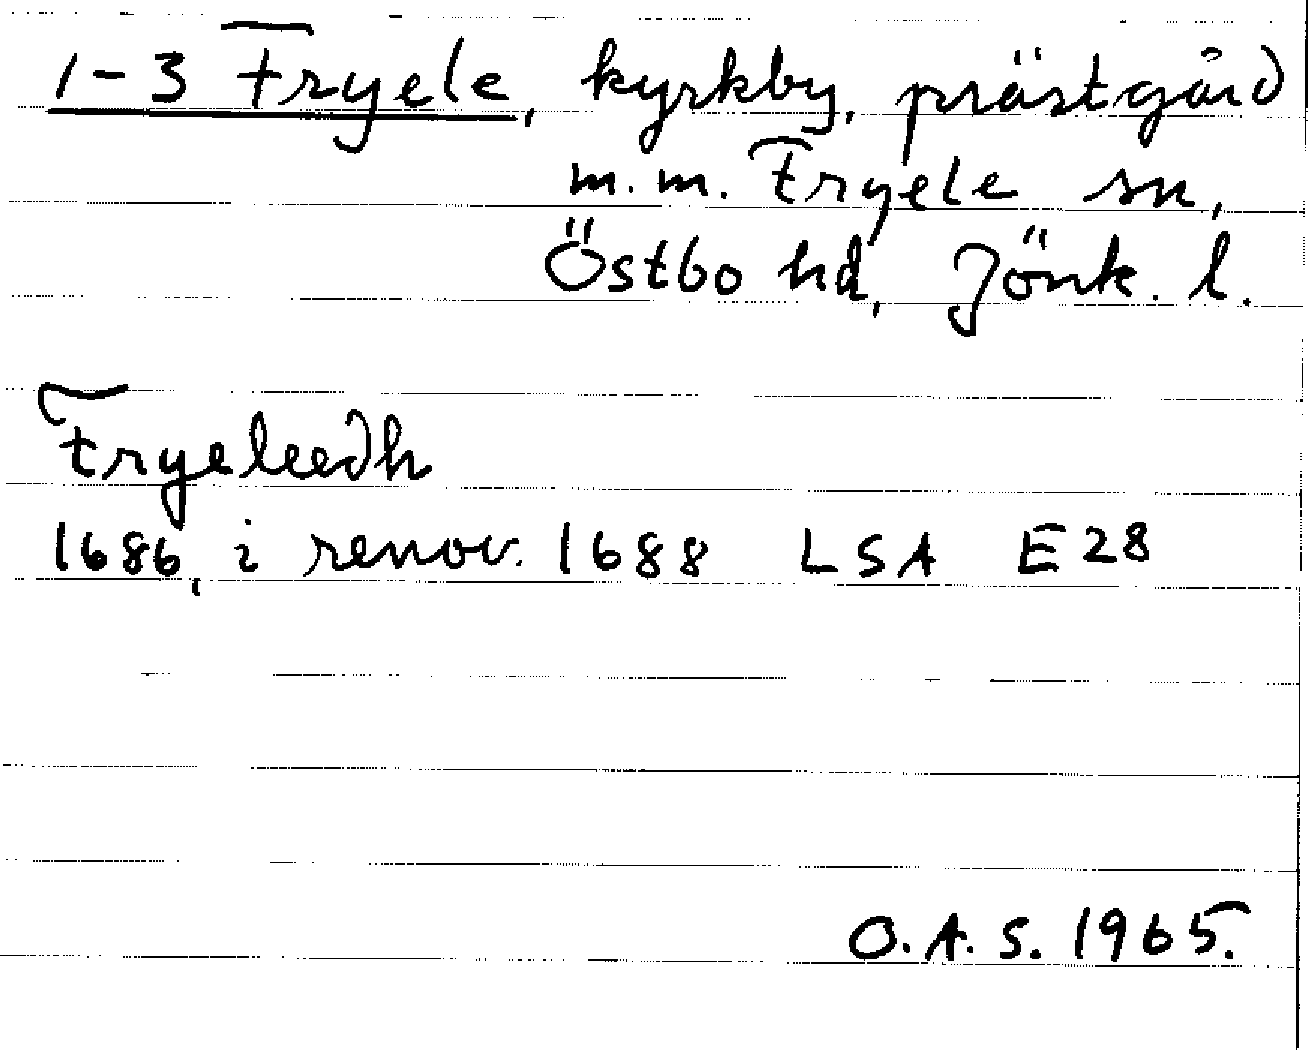 1-3 Fryele, kyrkby, prästgård
m.m. Fryele sn,
Östbo hd, Jönk. l.
Fryeleedh
1686, i renov. 1688 LSA E28
O.A.S. 1965.